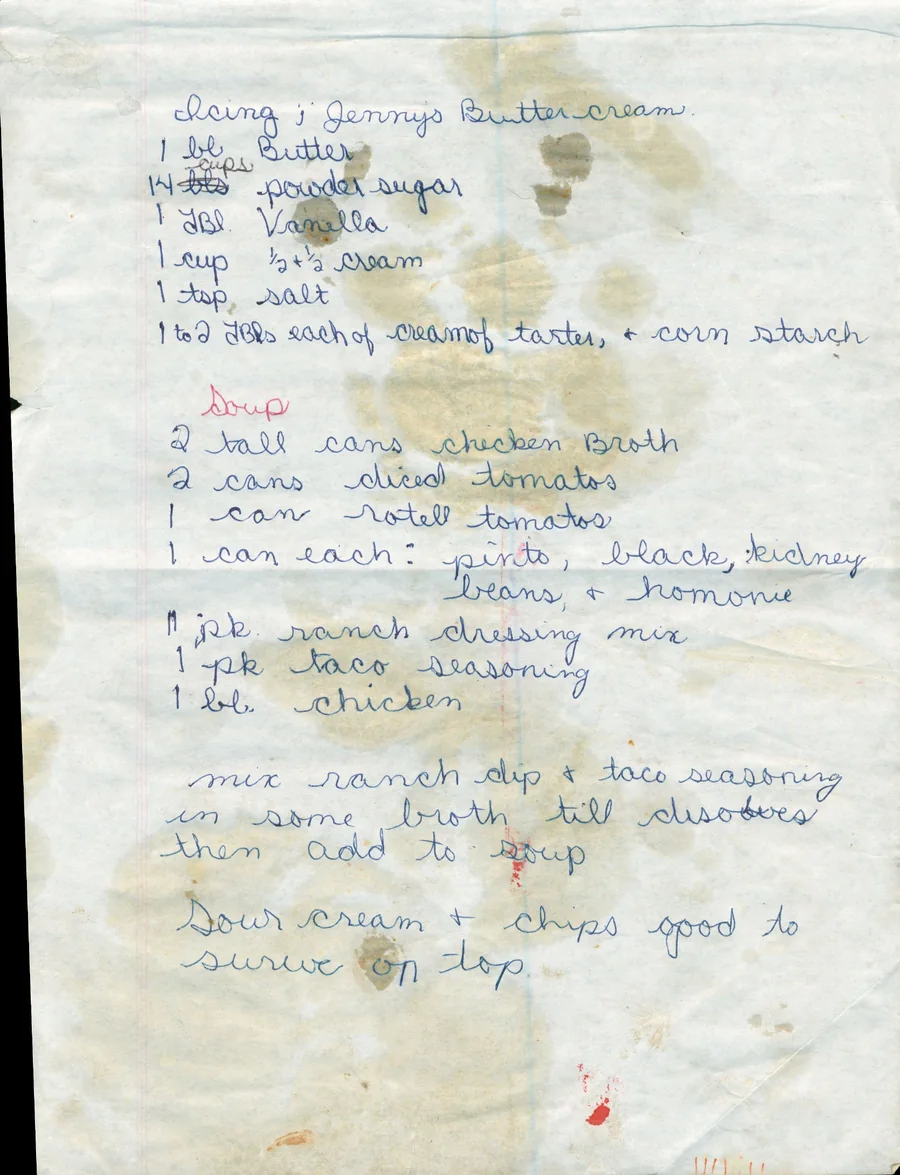 Icing ; Jennys Buttercream.
1 bl Butter
cups
14 bls powder sugar
1 TBl. Vanilla
1 cup ½ + ½ cream
1 tsp salt
1 to 2 TBls each of cream of tarter, + corn starch
Soup
2 tall cans chicken Broth
2 cans diced tomatos
1 can rotell tomatos
1 can each: pinto, black, kidney
beans, + homonie
1 pk. ranch dressing mix
1 pk taco seasoning
1 bl. chicken
mix ranch dip + taco seasoning
in some broth till disolves
then add to soup
Sour cream + chips good to
surve on top.